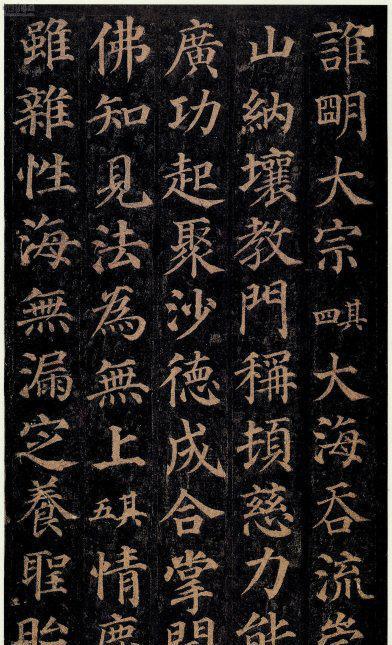 誰朙大宗其四大海吞流崇
山納壤教門稱頓慈力能
廣功起聚沙德成合掌開
佛知見法為無上其五情塵
雖雜性海無漏㝎養聖胎